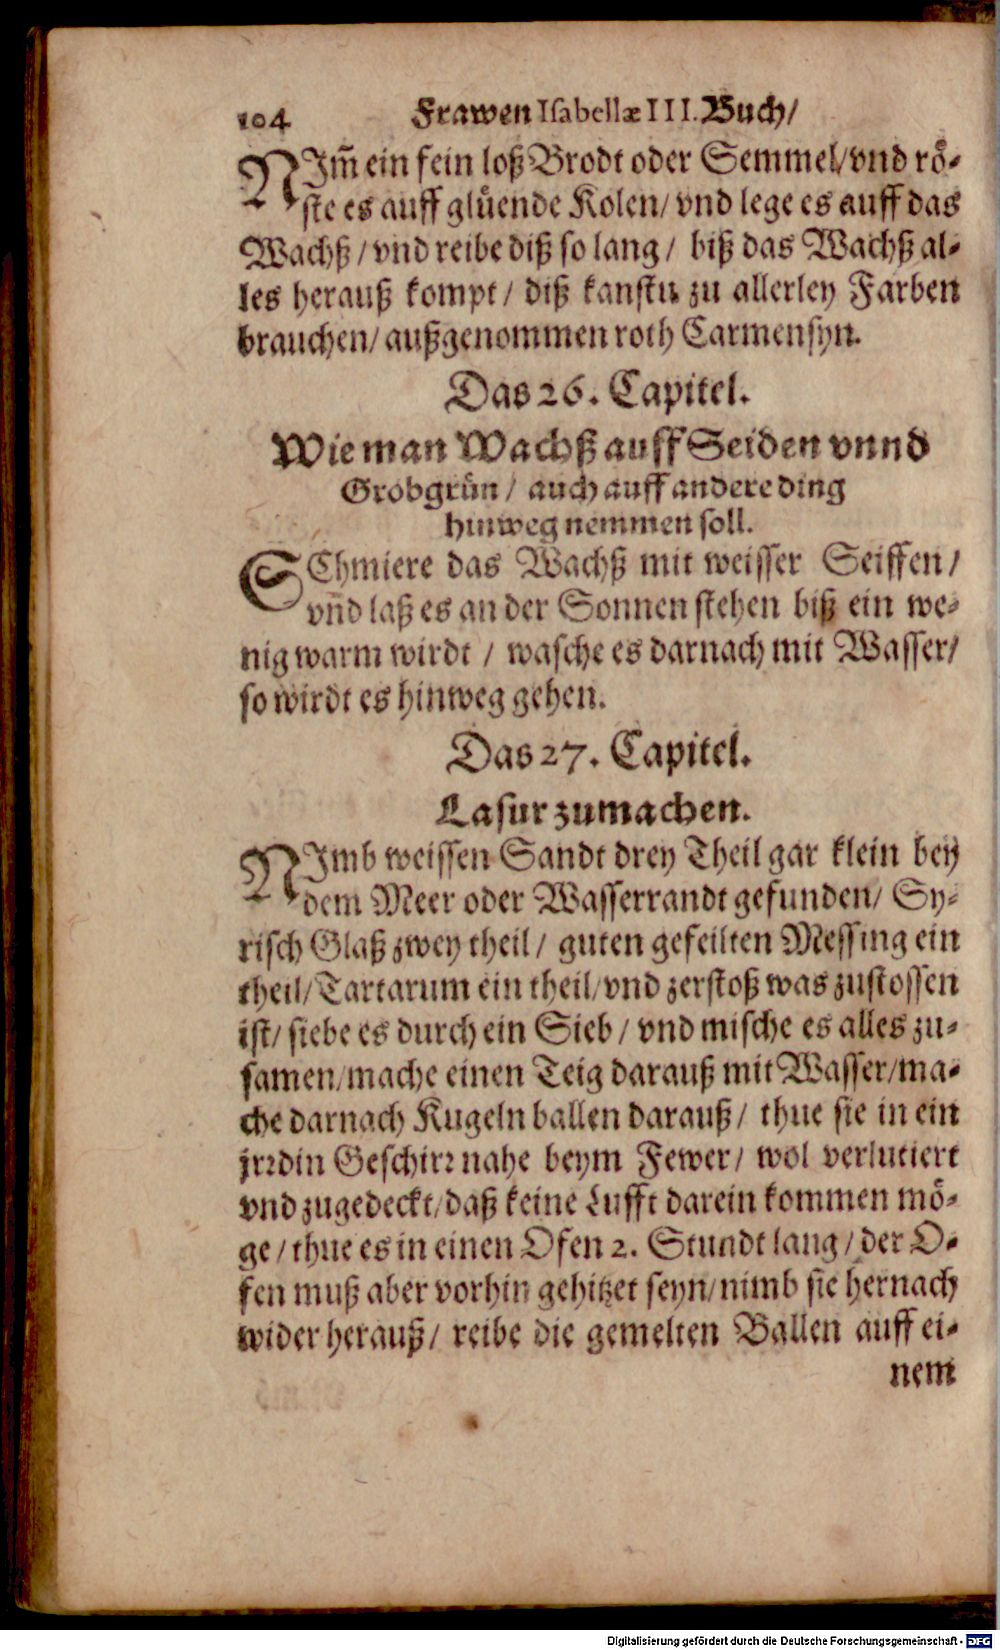 104 Frawen Isabellæ III. Buch/
NIm̃ ein fein loß Brodt oder Semmel/vnd rö-
ste es auff glüende Kolen/ vnd lege es auff das
Wachß / vnd reibe diß so lang / biß das Wachß al-
les herauß kompt / diß kanstu zu allerley Farben
brauchen/ außgenommen roth Carmensyn.
Das 26. Capitel.
Wie man Wachß auff Seiden vnnd
Grobgrün / auch auff andere ding
hinweg nemmen soll.
SChmiere das Wachß mit weisser Seiffen/
vñd laß es an der Sonnen stehen biß ein we-
nig warm wirdt / wasche es darnach mit Wasser/
so wirdt es hinweg gehen.
Das 27. Capitel.
Lasur zumachen.
NImb weissen Sandt drey Theil gar klein bey
dem Meer oder Wasserrandt gefunden/ Sy-
risch Glaß zwey theil / guten gefeilten Messing ein
theil/Tartarum ein theil/vnd zerstoß was zustossen
ist/ siebe es durch ein Sieb / vnd mische es alles zu-
samen/mache einen Teig darauß mit Wasser/ma-
che darnach Kugeln ballen darauß / thue sie in ein
jrrdin Geschirr nahe beym Fewer/ wol verlutiert
vnd zugedeckt/daß keine Lufft darein kommen mö-
ge / thue es in einen Ofen 2. Stundt lang / der O-
fen muß aber vorhin gehitzet seyn/nimb sie hernach
wider herauß / reibe die gemelten Ballen auff ei-
nem
Digitalisierung gefördert durch die Deutsche Forschungsgemeinschaft - DFG